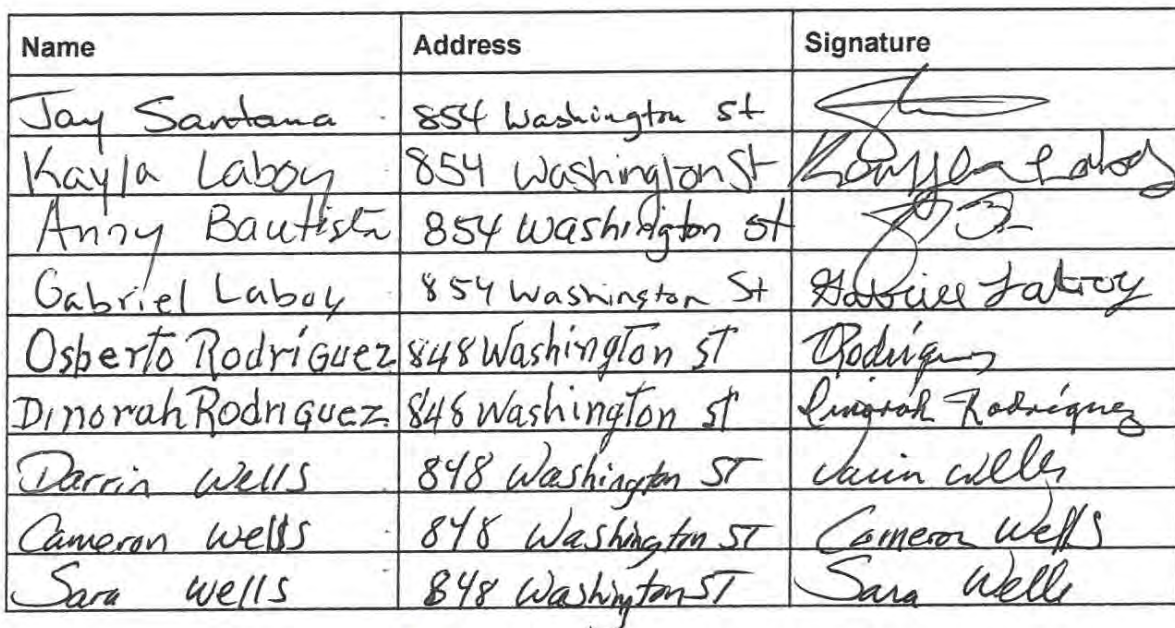 Name Address Signature
Jay Santana 854 Washington St
Kayla Laboy 854 Washington St Kayla Laboy
Anny Bautista 854 Washington St
Gabriel Laboy 854 Washington St Gabriel Laboy
Osberto Rodríguez 848 Washington ST Rodríguez
Dinorah Rodriguez 848 Washington ST Dinorah Rodríguez
Darrin Wells 848 Washington ST Darrin Wells
Cameron Wells 848 Washington ST Cameron Wells
Sara Wells 848 Washington ST Sara Wells